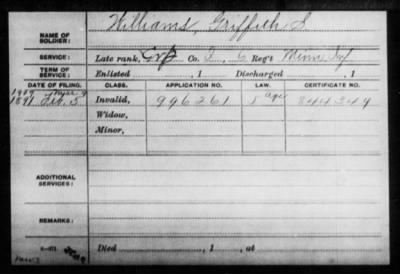 NAME OF SOLDIER: Williams, Griffith S
SERVICE: Late rank, Corp Co. D, 6 Reg't Minn Inf
TERM OF SERVICE: Enlisted , 1 Discharged , 1
DATE OF FILING. CLASS. APPLICATION NO. LAW. CERTIFICATE NO.
1907 Mar. 9
1891 Feb. 5 Invalid, 996261 844349
Widow,
Minor,
ADDITIONAL SERVICES:
REMARKS:
Died , 1 , at